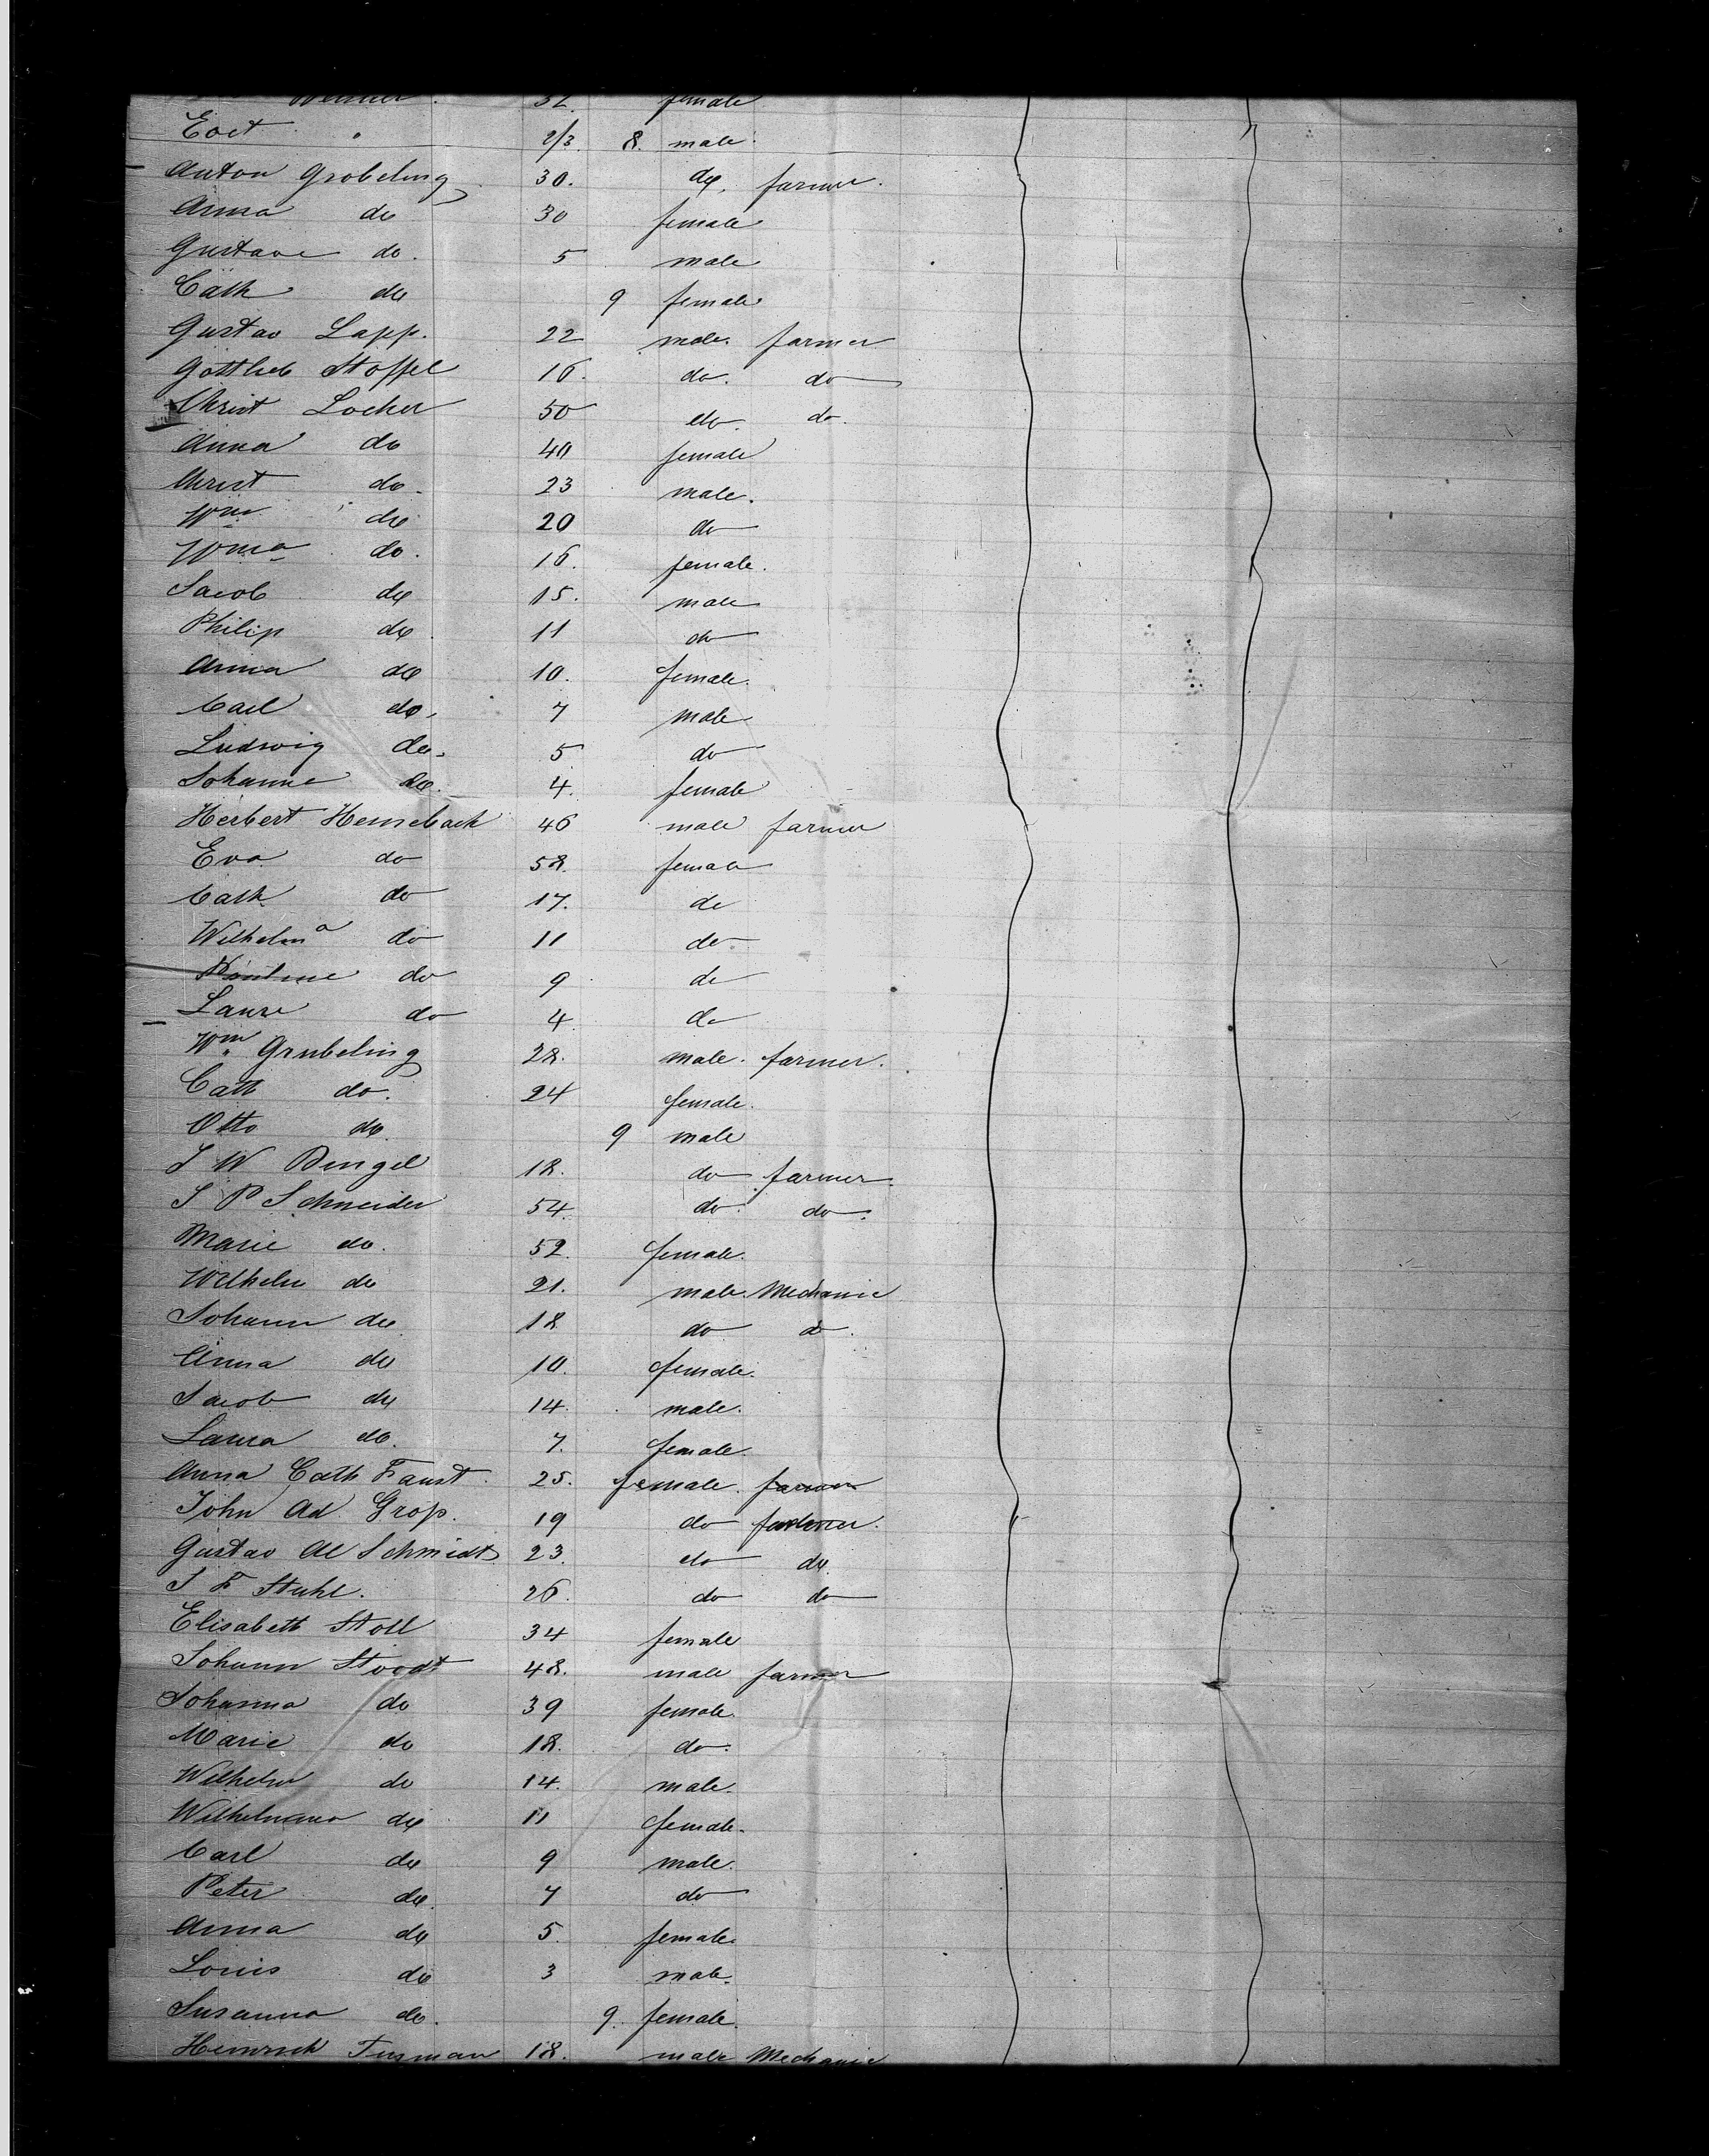 32. female
Eoct " 2/3. 8. male.
Anton Grobeling 30. do. farmer.
Anna do 30 female
Gustave do. 5 male
Cath do 9 female
Gustav Lapp. 22 male. farmer
Gottlieb Stoffel 16. do. do
Christ Locher 50 do. do.
Anna do 40 female
Christ do. 23 male.
Wm do 20 do
Wma do. 16. female.
Jacob do 15. male
Philip do 11 do
Anna do 10. female.
Carl do. 7 male
Ludwig do. 5 do
Johanne do. 4. female
Herbert Hemebach 46 male farmer
Eva do 58. female
Cath do 17. do
Wilhelma do 11 do.
Pauline do 9 do
Laura do 4. do
Wm Grubeling 28. male. farmer.
Cath do. 24 female.
Otto do. 9 male
J W Bengel 18. do farmer.
J P Schneider 54. do. do.
Marie do. 52. female.
Wilhelm do 21. male. Mechanic
Johann do 18 do do.
Anna do 10. female.
Jacob do 14. male.
Laura do. 7. female.
Anna Cath Faust. 25. female. farmer
John Ad. Grop. 19 do farmer.
Gustav Al Schmidt 23. do do.
J F Stuhl. 26. do do
Elisabeth Stoll 34 female
Johann Stoodt 48. male farmer
Johanna do 39 female.
Marie do 18. do.
Wilhelm do 14. male.
Wilhelmana do 11 female.
Carl do 9 male.
Peter do. 7 do
Anna do 5. female.
Louis do 3 male.
Susanna do. 9. female.
Heinrich Tusman 18. male Mechanic